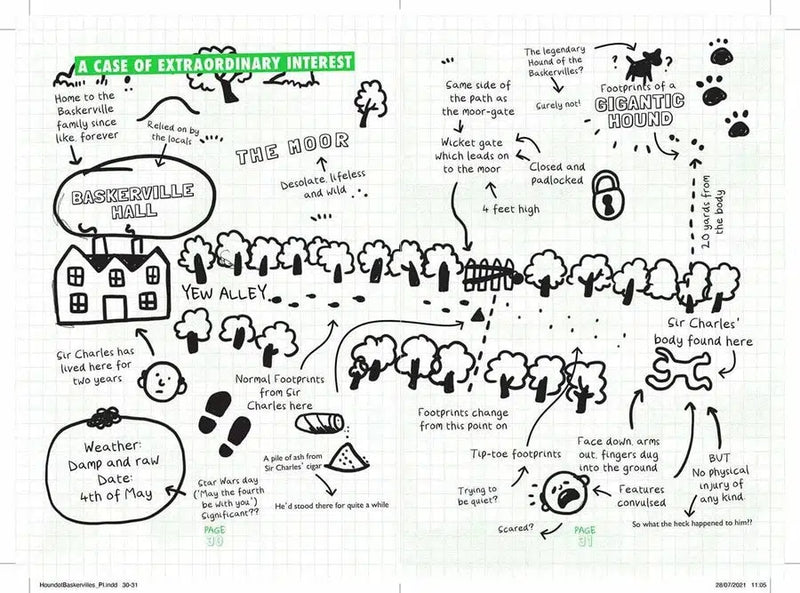 A CASE OF EXTRAORDINARY INTEREST
Home to the
Baskerville
family since
like, forever
Relied on by
the locals
THE MOOR
Desolate, lifeless
and wild
BASKERVILLE
HALL
YEW ALLEY
Sir Charles has
lived here for
two years
Normal Footprints
from Sir
Charles here
Weather:
Damp and raw
Date:
4th of May
Star Wars day
('May the fourth
be with you')
Significant??
A pile of ash from
Sir Charles' cigar
He'd stood there for quite a while
PAGE
30
The legendary
Hound of the
Baskervilles?
Surely not!
? ?
Footprints of a
GIGANTIC
HOUND
Same side of
the path as
the moor-gate
Wicket gate
which leads on
to the moor
Closed and
padlocked
4 feet high
20 yards from
the body
Sir Charles'
body found here
Footprints change
from this point on
Tip-toe footprints
Trying to
be quiet?
Scared?
Face down, arms
out, fingers dug
into the ground
Features
convulsed
BUT
No physical
injury of
any kind.
So what the heck happened to him??
PAGE
31
HoundofBaskervilles_PI.indd 30-31
28/07/2021 11:05